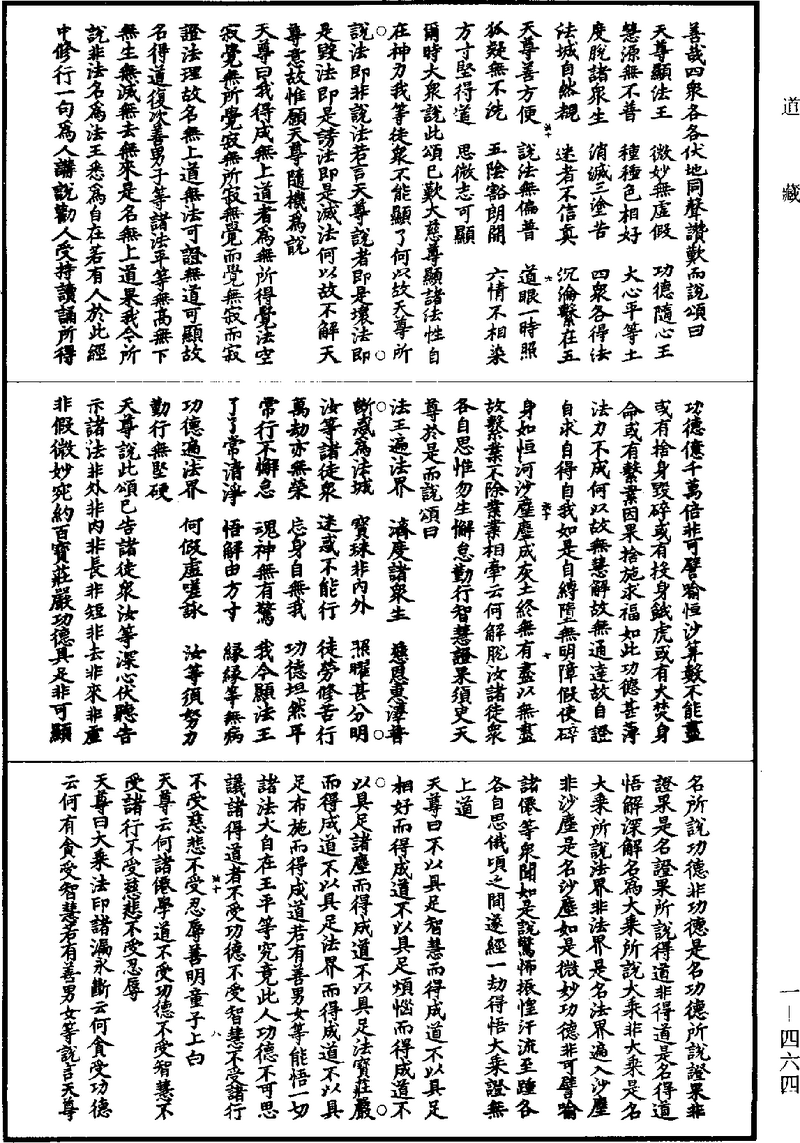 道藏
善哉四衆各各伏地同聲讚歎而說頌曰
天尊顯法王　微妙無虛假　功德隨心王
慧源無不普　種種色相好　大心平等土
度脫諸衆生　消滅三塗苦　四衆各得法
法城自然覩　迷者不信真　沉淪繫在五
天尊善方便　說法無偏普　道眼一時照
狐疑無不洗　五陰豁朗開　六情不相染
方寸堅得道　思微志可顯
爾時大衆說此頌已歎大慈尊顯諸法性自
在神力我等徒衆不能顯了何以故天尊所
說法即非說法若言天尊說者即是壞法即
是毀法即是謗法即是滅法何以故不解天
尊意故惟願天尊隨機爲說
天尊曰我得成無上道者爲無所得覺法空
寂覺無所覺寂無所寂無覺而覺無寂而寂
證法理故名無上道無法可證無道可顯故
名得道復次善男子等諸法平等無高無下
無生無滅無去無來是名無上道果我今所
說非法名爲法王悉爲自在若有人於此經
中修行一句爲人講說勸人受持讀誦所得
功德億千萬倍非可譬喻恒沙算數不能盡
或有捨身毀碎或有投身餓虎或有大焚身
命或有繫業因果捨施求福如此功德甚薄
法力不成何以故無慧解故無通達故自證
自求自得自我如是自縛墮無明障假使碎
身如恒河沙塵塵成灰土終無有盡以無盡
故繫業不除業業相牽云何解脫汝諸徒衆
各自思惟勿生懈怠勤行智慧證果須史天
尊於是而說頌曰
法王遍法界　濟度諸衆生　慈恩惠澤普
斷惑爲法城　寶珠非內外　照曜甚分明
汝等諸徒衆　迷惑不能行　徒勞修苦行
萬劫亦無榮　忘身自無我　功德坦然平
常行不懈怠　魂神無有驚　我今顯法王
了了常清淨　悟解由方寸　緣緣等無病
功德遍法界　何假虛嗟詠　汝等須努力
勤行無堅硬
天尊說此頌已告諸徒衆汝等深心伏聽告
示諸法非外非內非長非短非去非來非虛
非假微妙宛約百寶莊嚴功德具足非可顯
名所說功德非功德是名功德所說證果非
證果是名證果所說得道非得道是名得道
悟解深解名爲大乘所說大乘非大乘是名
大乘所說法界非法界是名法界遍入沙塵
非沙塵是名沙塵如是微妙功德非可譬喻
諸僊等衆聞如是說驚怖振惶汗流至踵各
各自思俄頃之間遂經一劫得悟大乘證無
上道
天尊曰不以具足智慧而得成道不以具足
相好而得成道不以具足煩惱而得成道不
以具足諸塵而得成道不以具足法寶莊嚴
而得成道不以具足法界而得成道不以具
足布施而得成道若有善男女等能悟一切
諸法大自在王平等究竟此人功德不可思
議諸得道者不受功德不受智慧不受諸行
不受慈悲不受忍辱善明童子上白
天尊云何諸僊學道不受功德不受智慧不
受諸行不受慈悲不受忍辱
天尊曰大乘法印諸漏永斷云何貪受功德
云何有貪受智慧若有善男女等說言天尊
一—四六四